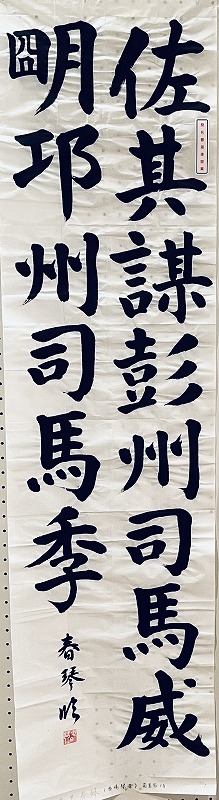 佐其謀彭州司馬威
明邛州司馬季
春琴